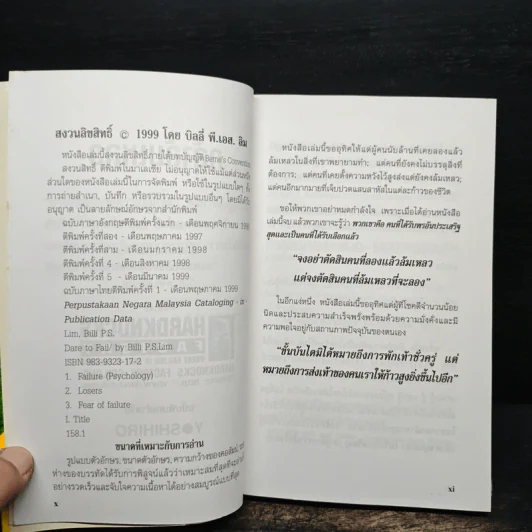 สงวนลิขสิทธิ์ © 1999 โดย บิลลี่ พี.เอส. ลิม
หนังสือเล่มนี้สงวนลิขสิทธิ์ภายใต้บทบัญญัติ Berne's Convention
สงวนสิทธิ์ ตีพิมพ์ในมาเลเซีย ไม่อนุญาตให้ใช้แม้แต่ส่วนหนึ่ง
ส่วนใดของหนังสือเล่มนี้ในการจัดพิมพ์ หรือใช้ในรูปแบบใดๆ ทั้ง
การถ่ายสำเนา, บันทึก หรือรวบรวมในรูปแบบอื่นๆ โดยมิได้
อนุญาต เป็นลายลักษณ์อักษรจากสำนักพิมพ์
ฉบับภาษาอังกฤษตีพิมพ์ครั้งแรก - เดือนพฤศจิกายน
ตีพิมพ์ครั้งที่สอง - เดือนพฤษภาคม 1997
ตีพิมพ์ครั้งที่สาม - เดือนมกราคม 1998
ตีพิมพ์ครั้งที่ 4 - เดือนสิงหาคม 1998
ตีพิมพ์ครั้งที่ 5 - เดือนมีนาคม 1999
ฉบับภาษาไทยตีพิมพ์ครั้งที่ 1 - เดือนพฤษภาคม 1999
Perpustakaan Negara Malaysia Cataloging - in
Publication Data
Lim, Billi P.S.
Dare to Fail/ by Billi P.S.Lim
ISBN 983-9323-17-2
1. Failure (Psychology)
2. Losers
3. Fear of failure
I. Title
158.1
ขนาดที่เหมาะกับการอ่าน
รูปแบบตัวอักษร, ขนาดตัวอักษร, ความกว้างของคอลัมน์
ห่างของบรรทัดได้รับการพิสูจน์แล้วว่าเหมาะสมที่สุดที่จะ
อย่างรวดเร็วและจับใจความเนื้อหาได้อย่างสมบูรณ์แบบที่สุด
x
หนังสือเล่มนี้ขออุทิศให้แด่ผู้คนนับล้านที่เคยลองแล้ว
ล้มเหลวในสิ่งที่เขาพยายามทำ; แด่คนที่ยังคงไม่บรรลุสิ่งที่
ต้องการ; แด่คนที่เคยตั้งความหวังไว้สูงส่งแต่ยังคงล้มเหลว;
แด่คนอีกมากมายที่เจ็บปวดแสนสาหัสในแต่ละก้าวของชีวิต
ขอให้พวกเขาอย่าหมดกำลังใจ เพราะเมื่อได้อ่านหนังสือ
เล่มนี้จบ แล้วพวกเขาจะรู้ว่า พวกเขาคือ คนที่ได้รับพรอันประเสริฐ
สุดและเป็นคนที่ได้รับเลือกแล้ว
“จงอย่าตัดสินคนที่ลองแล้วล้มเหลว
แต่จงตัดสินคนที่ล้มเหลวที่จะลอง”
ในอีกแง่หนึ่ง หนังสือเล่มนี้ขออุทิศแด่ผู้ที่โชคดีจำนวนน้อย
นิดและประสบความสำเร็จพรั่งพร้อมด้วยความมั่งคั่งและมี
ความพอใจอยู่กับสถานภาพปัจจุบันของตนเอง
“ขั้นบันไดมิได้หมายถึงการพักเท้าชั่วครู่ แต่
หมายถึงการส่งเท้าของคนเราให้ก้าวสูงยิ่งขึ้นไปอีก”
xi